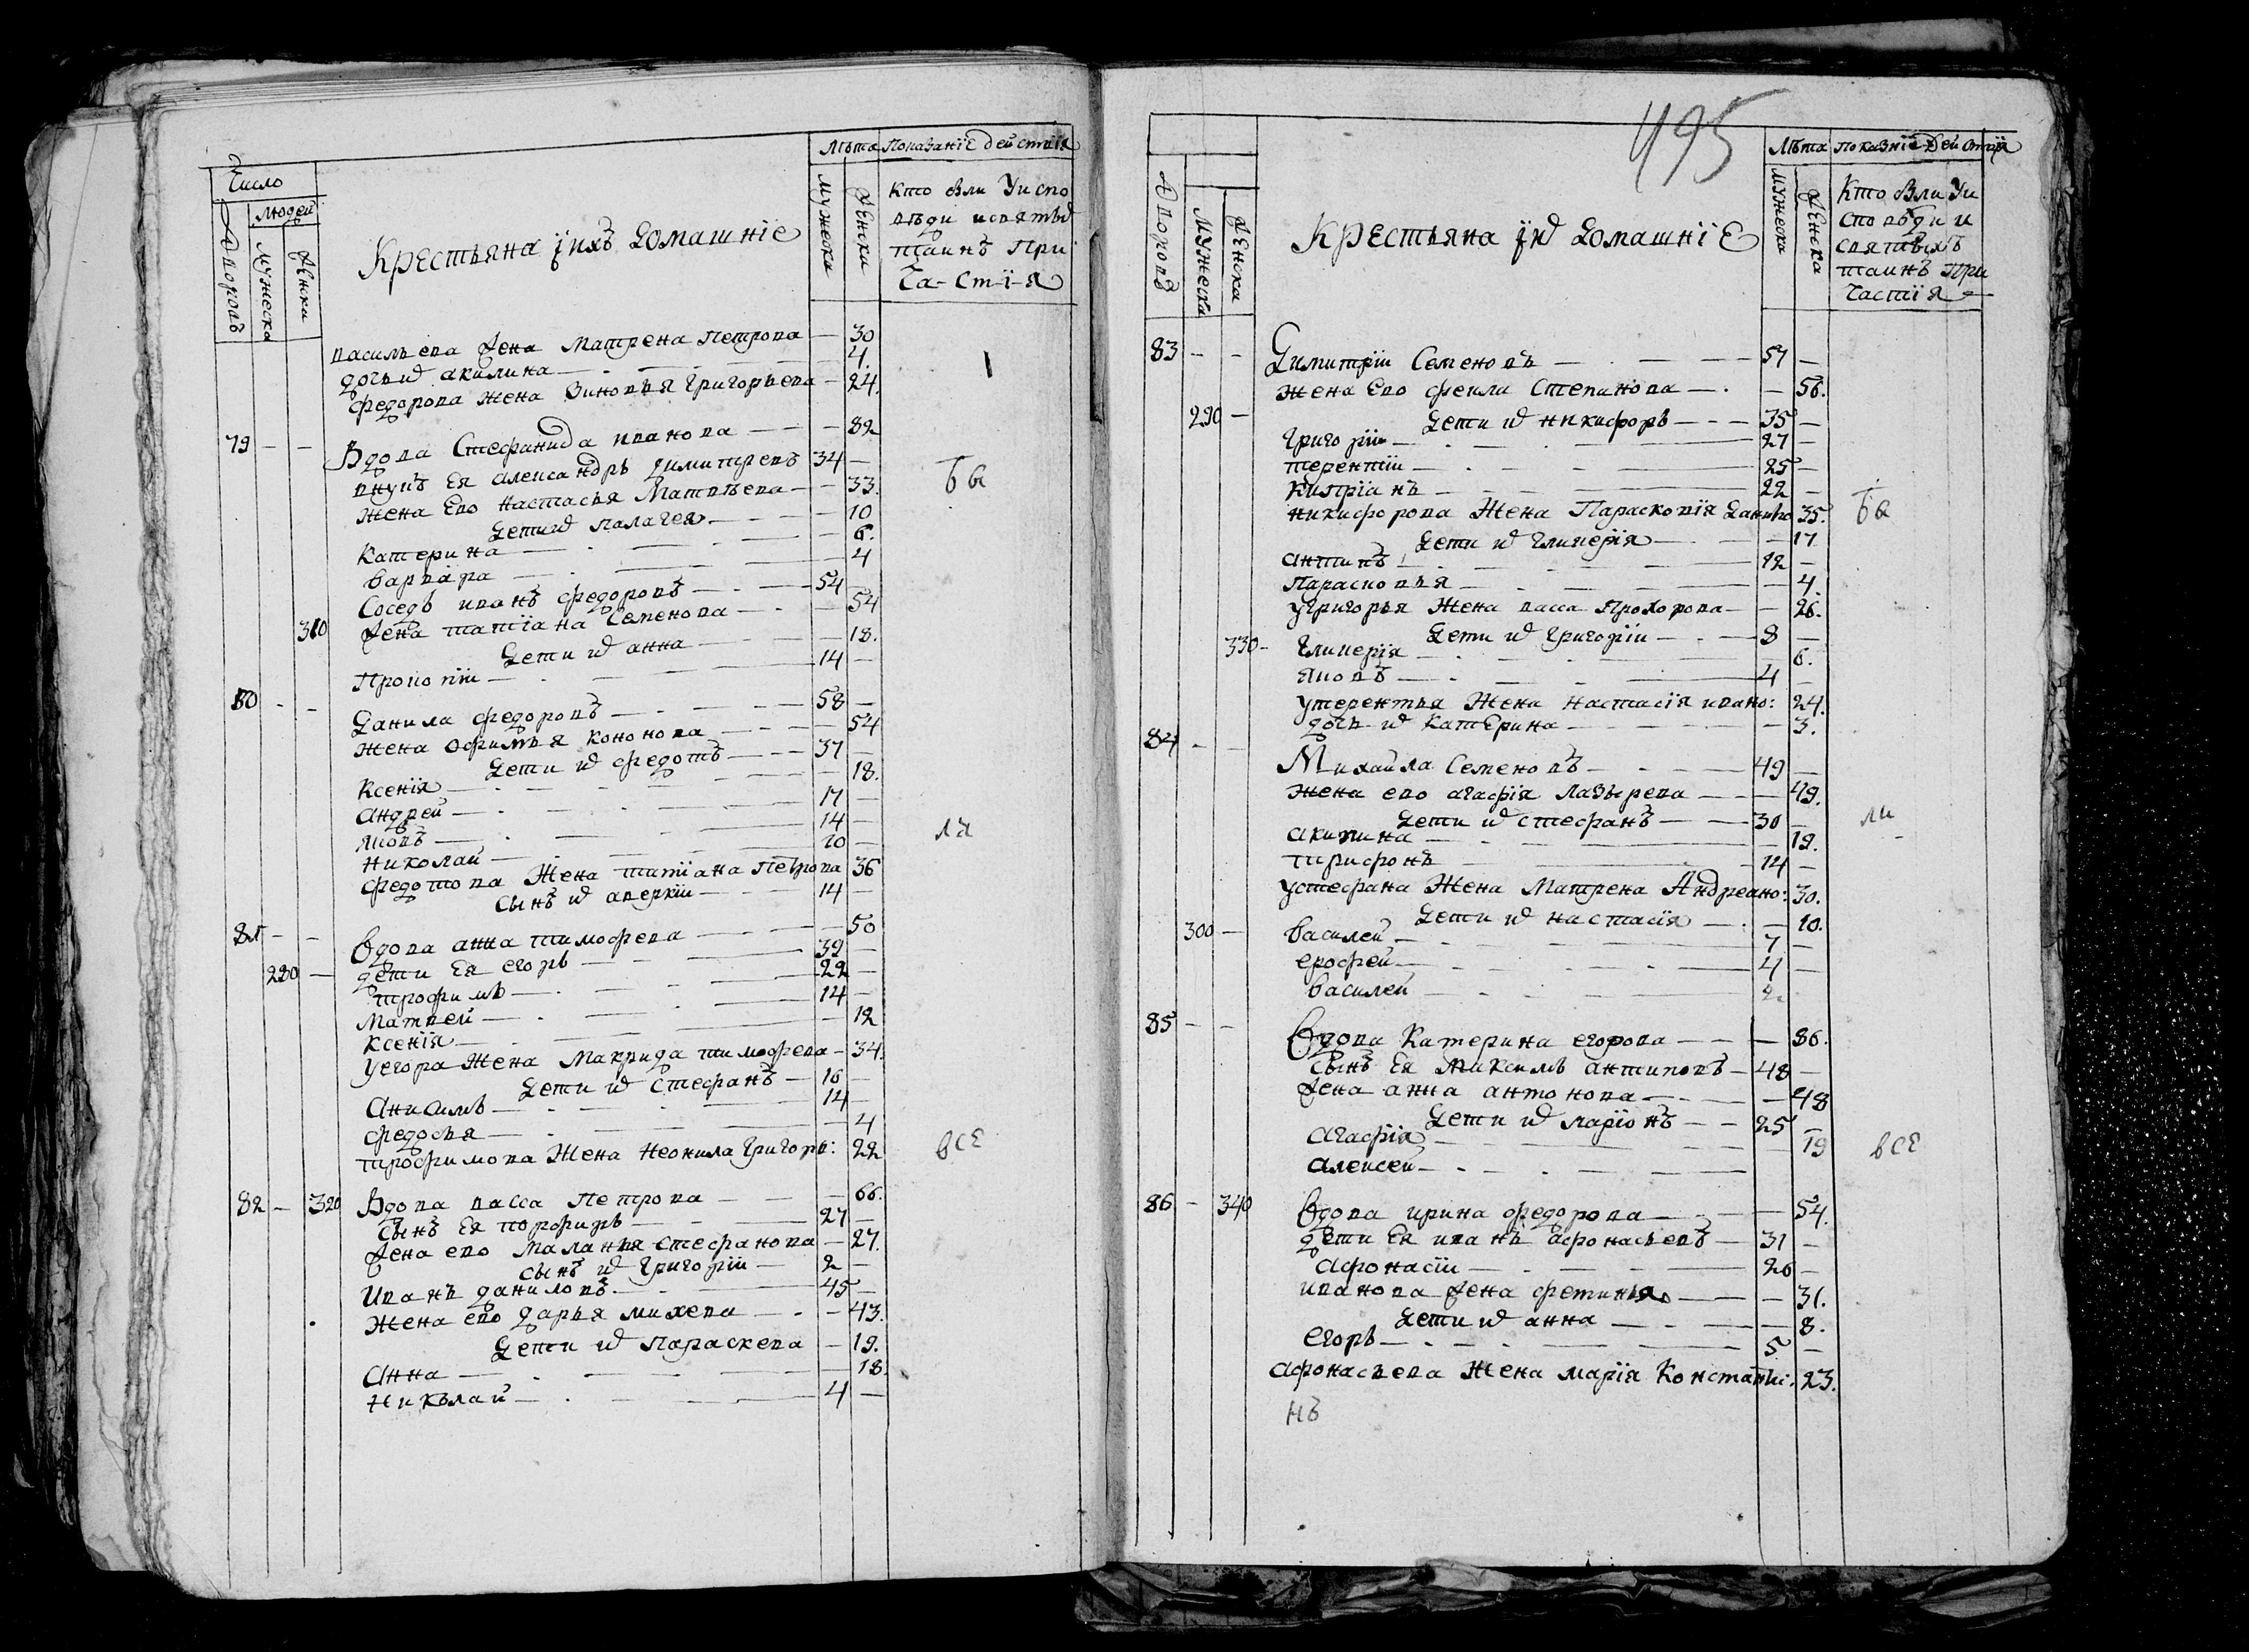 Число
Людей
Дворовъ
Мужеска
Женска
Крестьяна їихъ Домашніе
Лѣта
Мужеска
Женски
Показаніе действія
Кто были Уиспо
вѣди исвятых
таинъ При
Ча-ст-ї-я
васильева жена Матрена Петрова — 30
дочь их акилина — 4.
федорова жена Зиновья Григорьева — 24.
79 — — Вдова Стефанида иванова — 82
внукъ Ея Александръ димитревъ 34 —
Жена Ево Настасья Матвѣева — 33.
Дети их палагея — 10
Катерина — 6.
варвара — 4
Соседъ иванъ федоровъ — 54
310 Жена татїана Семенова — 54
Дети их анна — 18.
Прокопїи — 14 —
бы
80 - - Данила федоровъ — 58 —
Жена Офимья Кононова — 54
Дети их федотъ — 37 —
Ксенїя — 18.
Андрей — 17 —
Яковъ — 14 —
Николай — 10 —
федотова Жена татїана Петрова 36
Сынъ их аверкїи — 14 —
ли
81 - - Вдова анна тимофева — 50
280 — дети Ея егоръ — 32 —
трофимъ — 22 —
Матвей — 14 —
Ксенїя — 12
Уегора Жена Макрида тимофева — 34.
Дети их Стефанъ — 16 —
Анисимъ — 14 —
федосья — 4
трофимова Жена Неонила Григорь: 22
все
82 — 320 Вдова васса Петрова — 66.
Сынъ Ея порфиръ — 27 —
Жена ево Маланья Стефанова — 27.
сынъ их Григорїи — 2 —
Иванъ даниловъ — 45 —
Жена ево дарья михева — 43.
Дети их Параскева — 19.
Анна — 18.
Николай — 4 —
495
Дворовъ
Мужеска
Женска
Крестьяна їих Домашнїе
Лѣта
Мужеска
Женска
Показнїе Действїя
Кто были Уи
споведи и
святыхъ
таинъ При
частїя
83 - - Димитрїи Семеновъ — 57 —
Жена Ево фекла Степанова — 56.
290 — Дети их никифоръ — 35 —
Григорїи — 27 —
терентїи — 25 —
Кипрїанъ — 22 —
никифорова Жена Парасковїя Данило 35.
Дети их Гликерїя — 17
антипъ — 12 —
Парасковья — 4.
Угригорья Жена васса Прохорова — 26.
Дети их Григорїи — 8 —
330 - Гликерїя — 6.
Яковъ — 4 —
Утерентья Жена Настасїя ивано: 24.
дочь их Катерина — 3.
бы
84 - - Михайла Семеновъ — 49 —
Жена ево агафїя Лазырева — 49.
Дети их стефанъ — 30 —
акилина — 19.
трифонъ — 14 —
Устефана Жена Матрена Андреяно: 30.
Дети их настасїя — 10.
300 — Василей — 7 —
ерофей — 4 —
Василей — 2.
ли
85 - - Вдова Катерина егорова — 86.
Сынъ Ея Максимъ антиповъ — 48 —
Жена анна антонова — 48
Дети их ларїонъ — 25 —
Агафїя — 19
Алексей —
все
86 - 340 Вдова ирина федорова — 54.
дети Ея иванъ афонасьевъ — 31 —
Афонасїи — 26 —
иванова жена фетинья — 31.
Дети их анна — 8.
Егоръ — 5 —
Афонасьева Жена марїя Константи: 23.
нъ